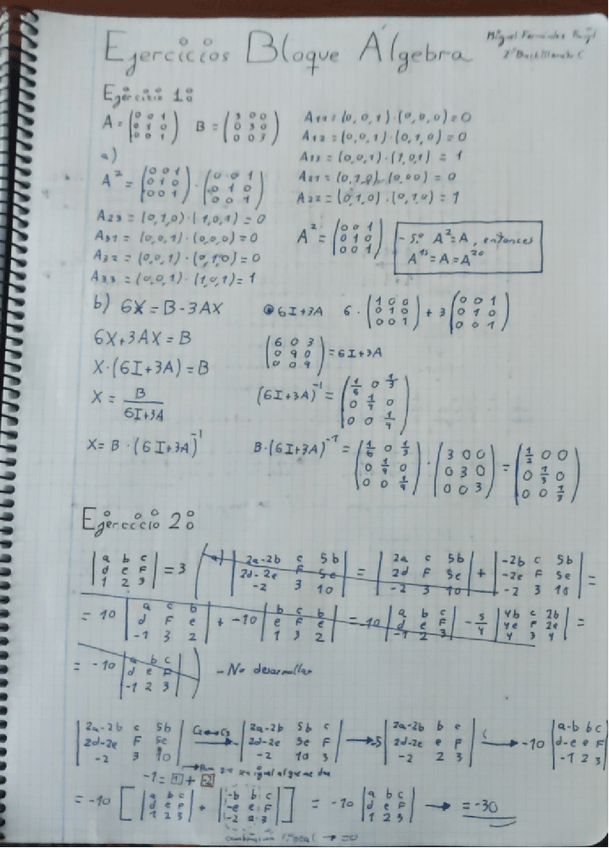 Ejercicios Bloque Álgebra
2º Bachillerato C
Ejercicio 1º
A = (0 0 1 / 0 1 0 / 0 0 1) B = (3 0 0 / 0 3 0 / 0 0 3)
A11 = (0,0,1)·(0,0,0) = 0
A12 = (0,0,1)·(0,1,0) = 0
a)
A13 = (0,0,1)·(1,0,1) = 1
A² = (0 0 1 / 0 1 0 / 0 0 1) · (0 0 1 / 0 1 0 / 0 0 1)
A21 = (0,1,0)·(0,0,0) = 0
A22 = (0,1,0)·(0,1,0) = 1
A23 = (0,1,0)·(1,0,1) = 0
A31 = (0,0,1)·(0,0,0) = 0
A32 = (0,0,1)·(0,1,0) = 0
A33 = (0,0,1)·(1,0,1) = 1
A² = (0 0 1 / 0 1 0 / 0 0 1)
- Si A² = A, entonces
A¹⁵ = A = A²⁰
b) 6X = B - 3AX
6X + 3AX = B
X·(6I+3A) = B
X = B / 6I+3A
X = B·(6I+3A)⁻¹
6I+3A 6·(1 0 0 / 0 1 0 / 0 0 1) + 3(0 0 1 / 0 1 0 / 0 0 1)
(6 0 3 / 0 9 0 / 0 0 9) = 6I+3A
(6I+3A)⁻¹ = (1/6 0 1/3 / 0 1/9 0 / 0 0 1/9)
B·(6I+3A)⁻¹ = (1/6 0 1/3 / 0 1/9 0 / 0 0 1/9) · (3 0 0 / 0 3 0 / 0 0 3) = (1/2 0 0 / 0 1/3 0 / 0 0 1/3)
Ejercicio 2º
|a b c / d e F / 1 2 3| = 3 (a) |2a-2b c 5b / 2d-2e F 5e / -2 3 10| = |2a c 5b / 2d F 5e / -2 3 10| + |-2b c 5b / -2e F 5e / -2 3 10| =
= -10 |a c b / d F e / -1 3 2| + -10 |b c b / e F e / 1 3 2| = -10 |a b c / d e F / -1 2 3| - 5/4 |4b c 2b / 4e F 2e / 4 3 4| =
= -10 |a b c / d e F / -1 2 3| ) - No desarrollar
|2a-2b c 5b / 2d-2e F 5e / -2 3 10| C2↔C3 → - |2a-2b 5b c / 2d-2e 5e F / -2 10 3| → -5 |2a-2b b c / 2d-2e e F / -2 2 3| → -10 |a-b b c / d-e e F / -1 2 3|
-1 = 1 + -2
= -10 [ |a b c / d e F / 1 2 3| + |-b b c / -e e F / -2 2 3| ] = -10 |a b c / d e F / 1 2 3| → = -30
combinación lineal → = 0